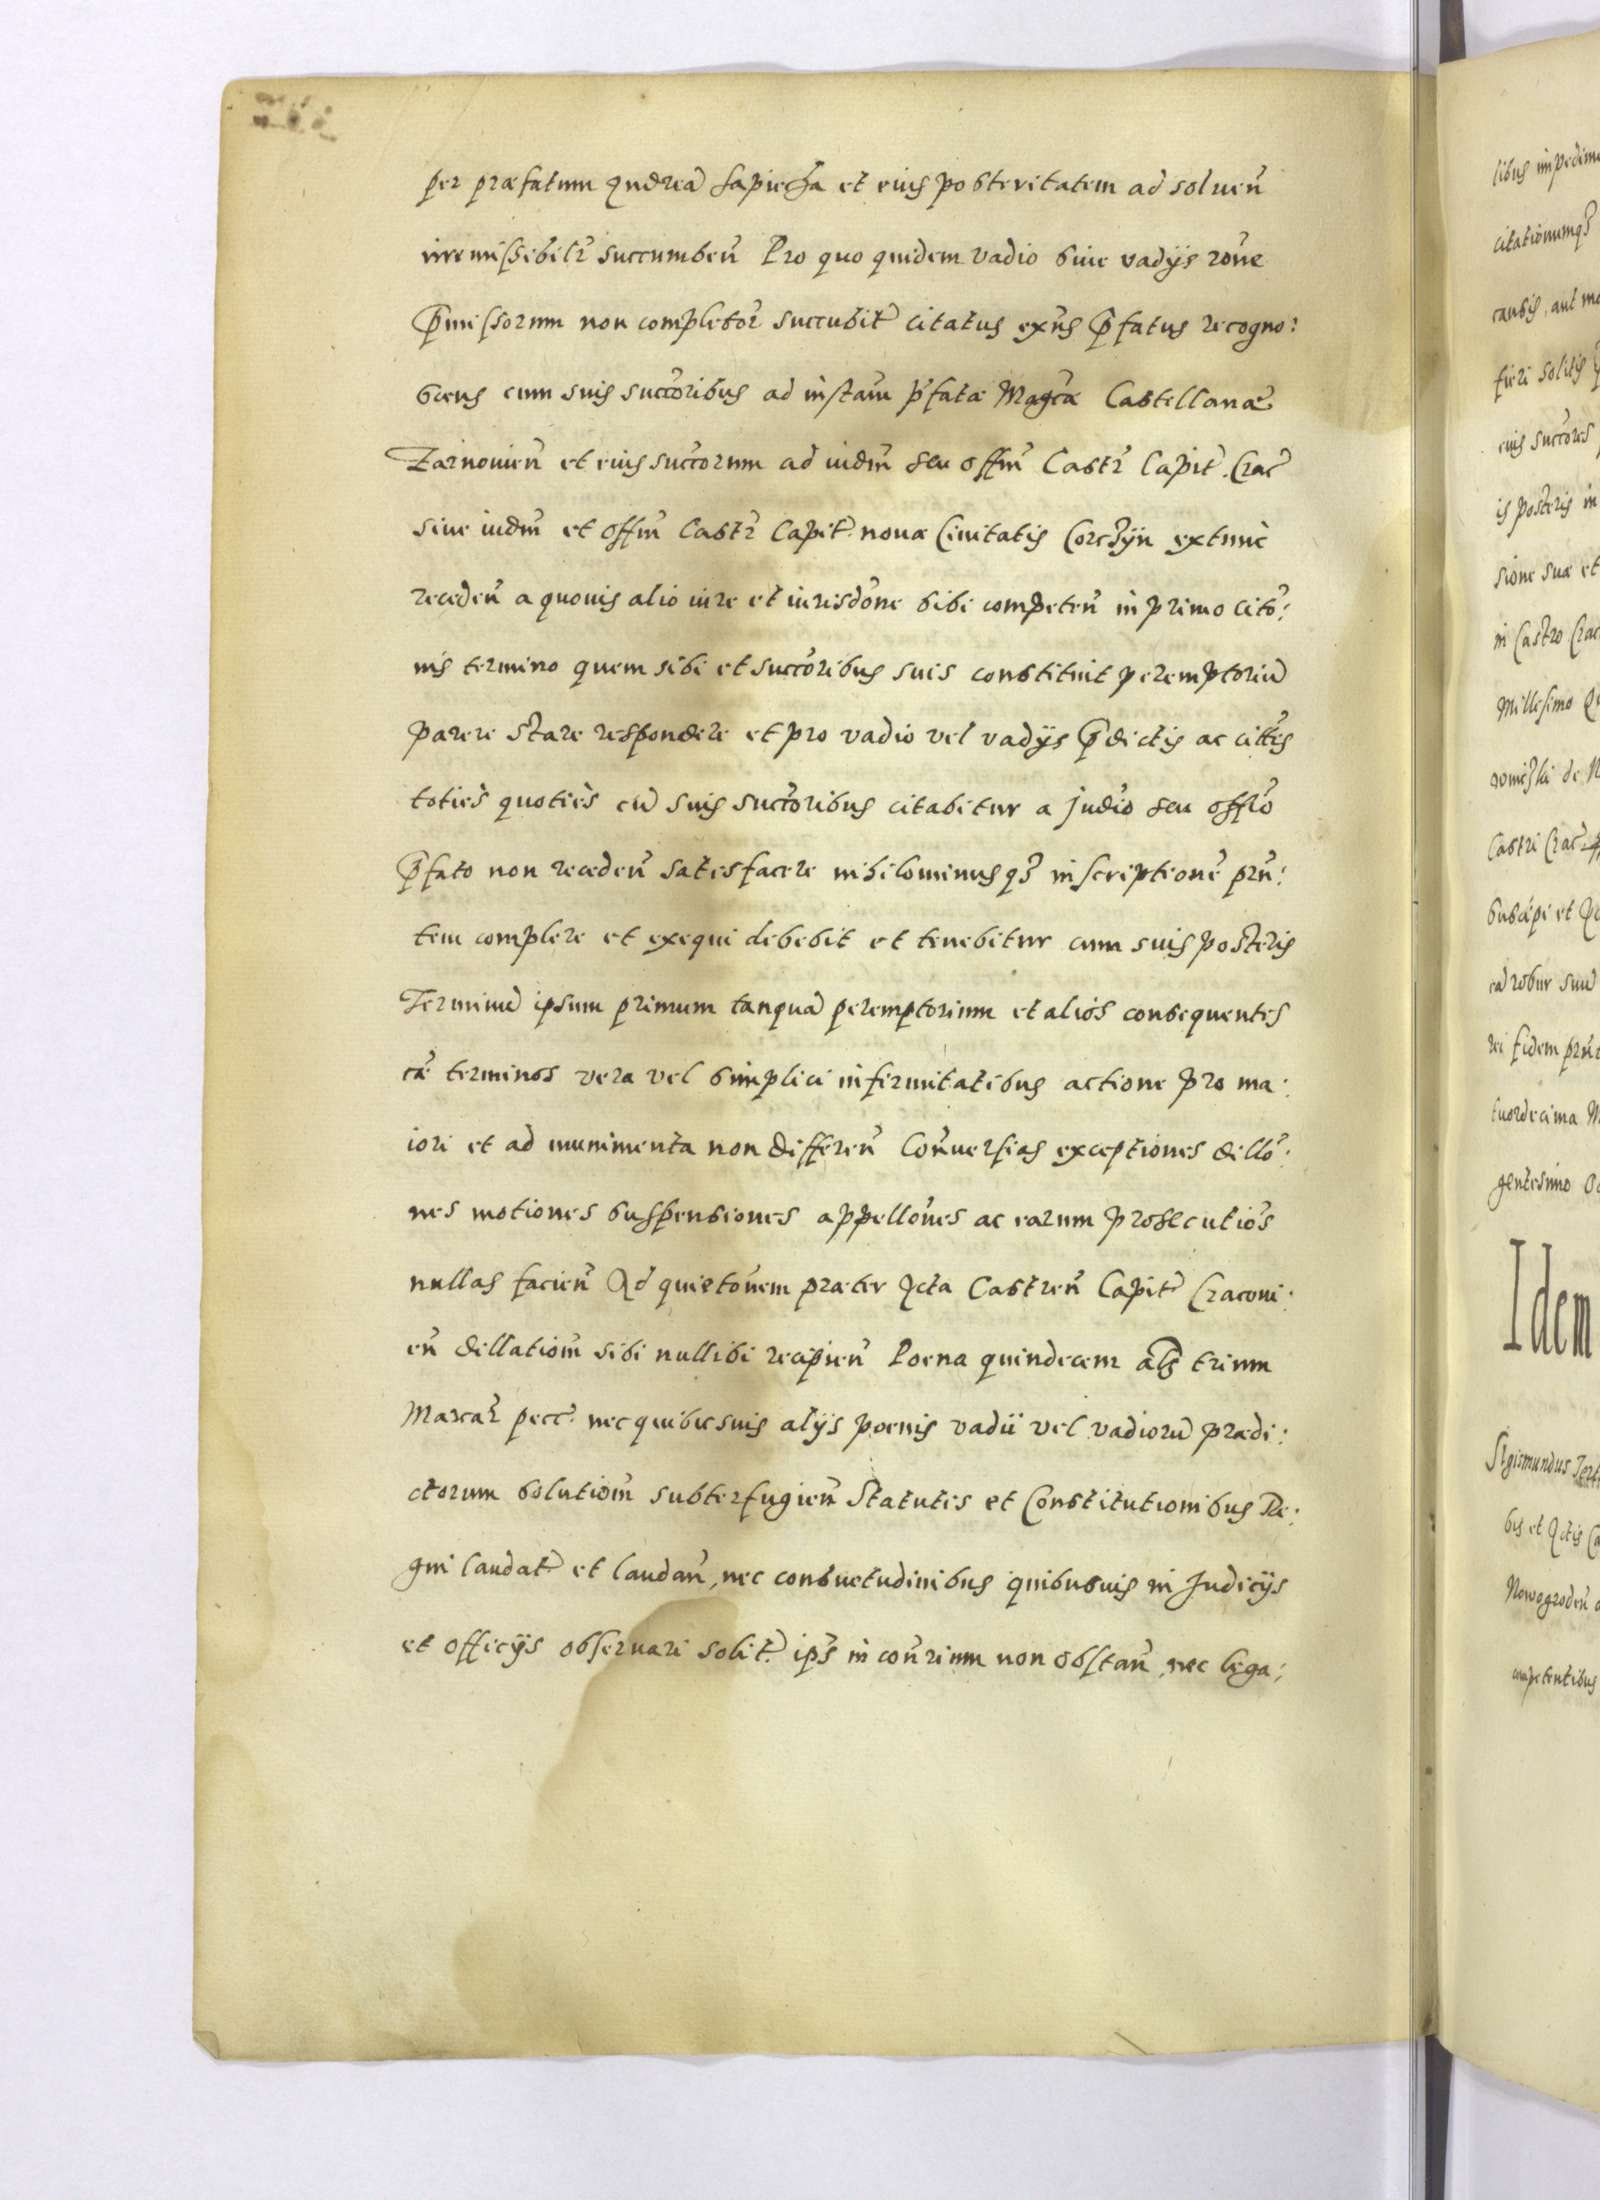 per præfatum Andreã Sapieha et eius posteritatem ad soluen̄
irremissibilr̄ succumben̄ Pro quo quidem vadio siue vadijs rõne
P̄missorum non completor̄ succubit̃ citatus exñs P̄fatus recogno:
scens cum suis succ̃oribus ad instañ p̄fatæ Mag̃cæ Castellanæ
Zarnouien̄ et eius succ̃orum ad iudm̃ seu offm̃ Castr̄ Capit̃. Crac̃
siue iudm̃ et offm̃ Castr̄ Capit̃. nouæ Ciuitatis Corczÿn extunc
receden̄ a quouis alio iure et iurisdõne sibi competen̄ in primo citõ:
nis termino quem sibi et succ̃oribus suis constituit peremptoriũ
parere stare respondere et pro vadio vel vadÿs P̄dictis ac citt̃is
toties quoties cũ suis succ̃oribus citabitur a Judio seu offio
P̄fato non receden̄ satisfacere nihilominusq̃ inscriptionẽ prñ:
tem complere et exequi debebit et tenebitur cum suis posteris
Terminũ ipsum primum tanquã peremptorium et alios consequentes
cæ̃ terminos vera vel simplici infirmitatibus actione pro ma:
iori et ad munimenta non differen̄ Con̄uersias exceptiones dillõ:
nes motiones suspensiones appellõnes ac earum prosecutiõs
nullas facien̄ Ad quietõnem præter Acta Castren̄ Capit̃ Cracoui:
en̄ dillatiom̃ sibi nullibi recipien̄ Poena quindecem als̃ trium
Marcar̄ pecc̃. nec quibusuis alÿs poenis vadii vel vadiorũ prædi:
ctorum solutiom̃ subterfugien̄ Statutis et Constitutionibus Re:
gni laudat̃ et laudan̄, nec consuetudinibus quibusuis in Judicÿs
et officÿs obseruari solit̃. ips̃ in con̄rium non obstan̄, nec lega:
libus impedime
citationumq̃
causis, aut mo
fieri solitis
eius succ̃ores
is posteris in
sione sua et
in Castro Crac
Millesimo
de N
Castri Crac̃
suscepi et
robur suũ
rei fidem prñt
tuordecima M
gentesimo
Idem
Sigismundus Terti
bis et Actis Ca
Nowogroden̄
competentibus